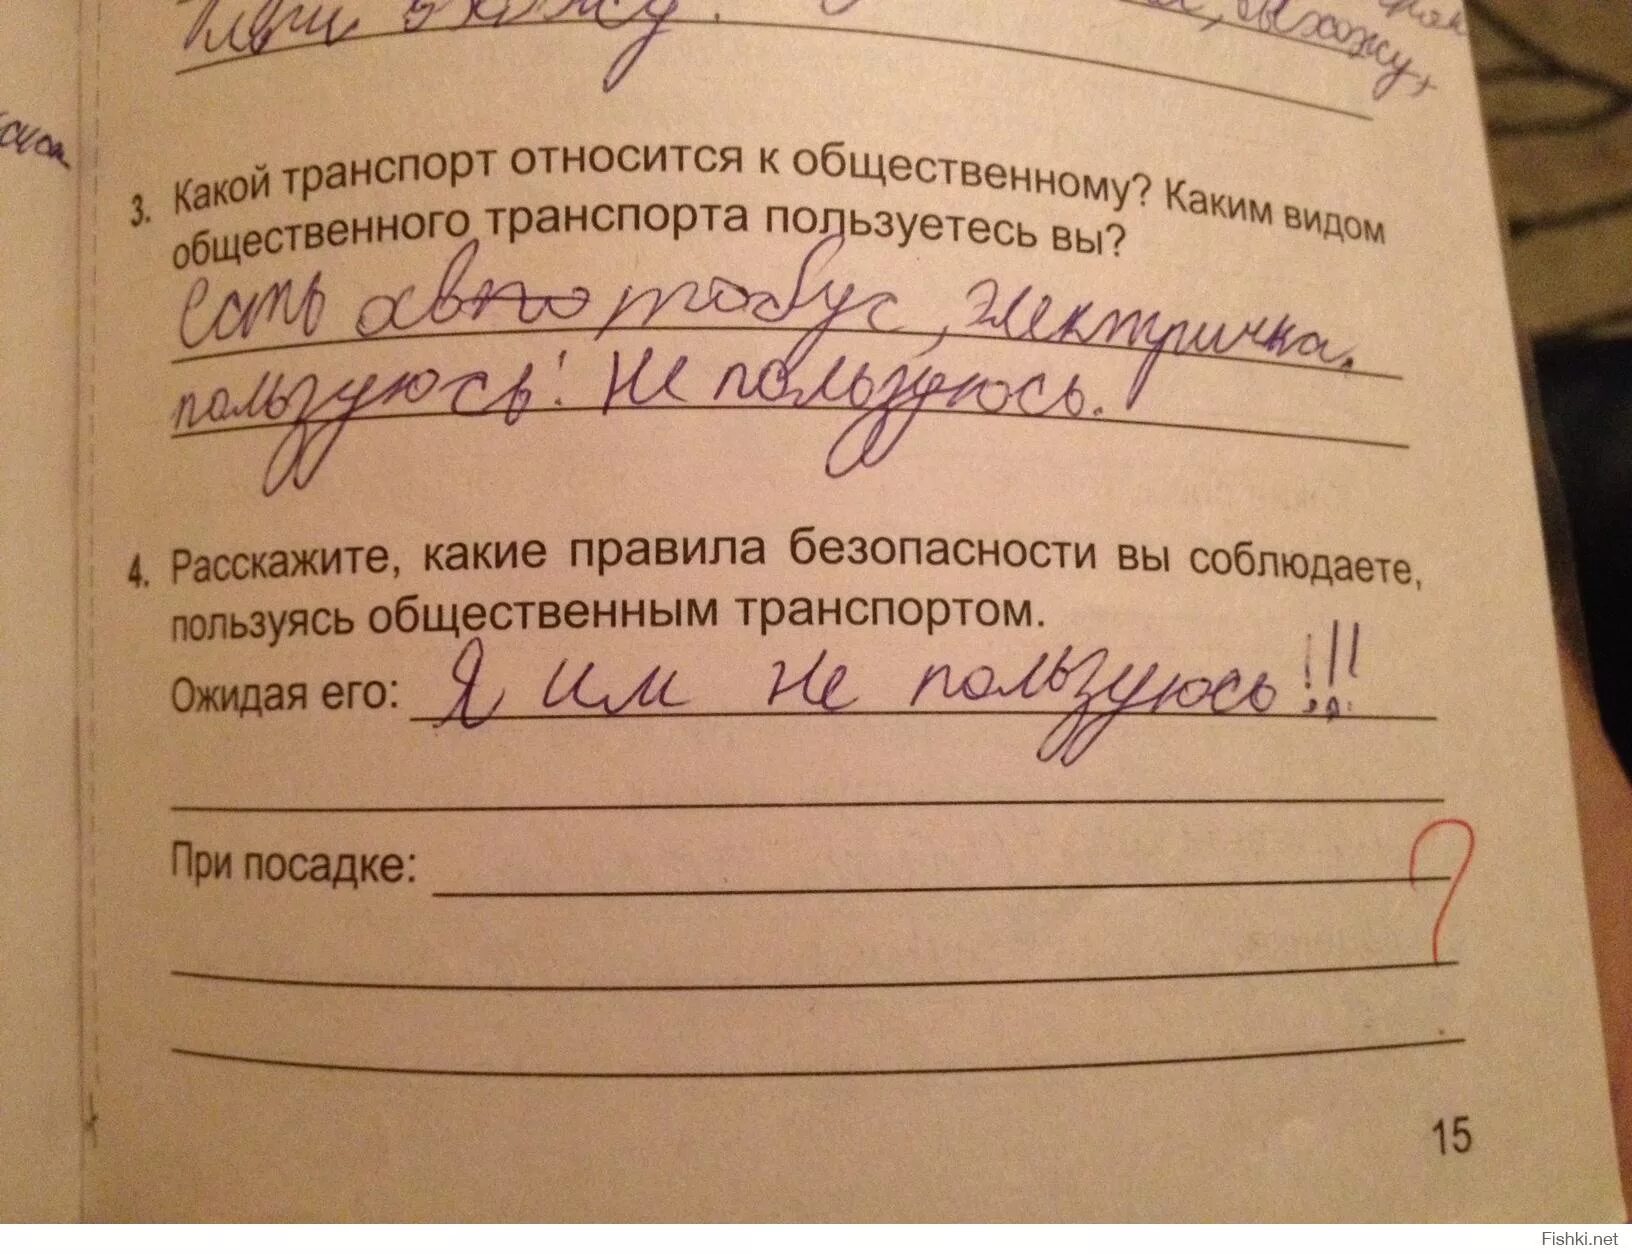 выхожу,
3. Какой транспорт относится к общественному? Каким видом
общественного транспорта пользуетесь вы?
есть автобус, электричка.
пользуюсь: Не пользуюсь.
4. Расскажите, какие правила безопасности вы соблюдаете,
пользуясь общественным транспортом.
Ожидая его: Я им не пользуюсь!!!
При посадке:
?
15
Fishki.net